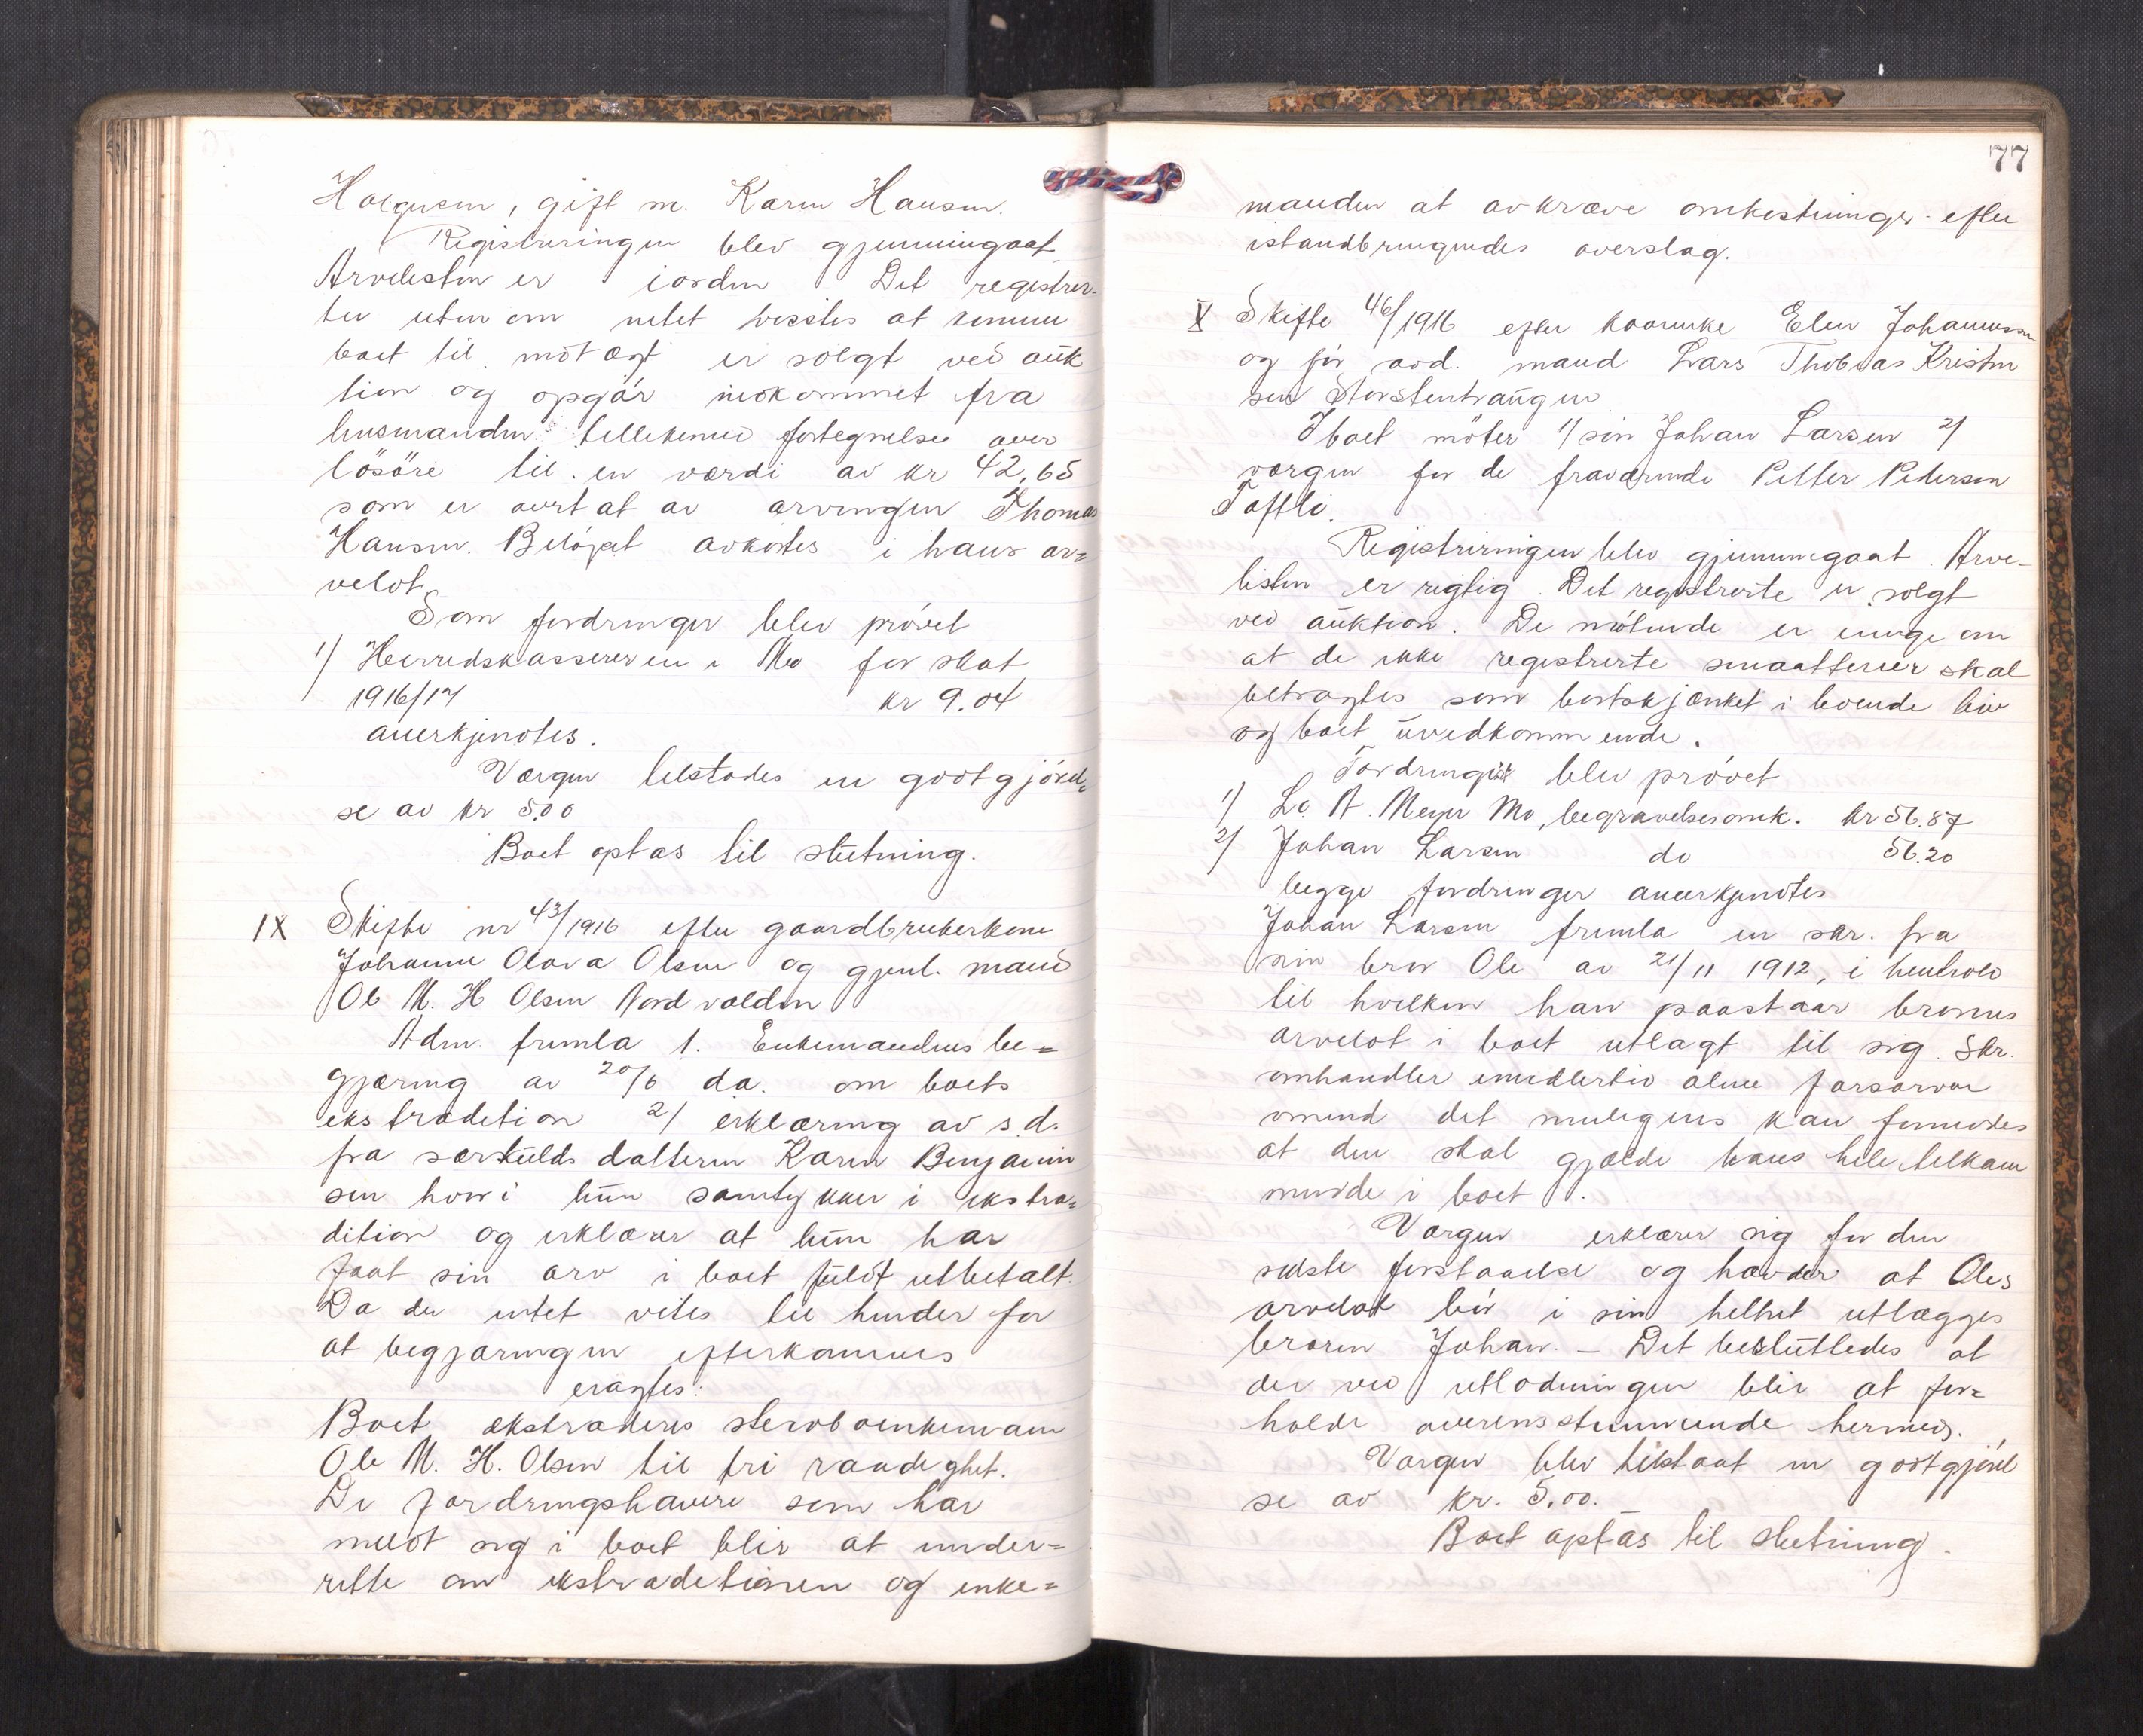 Holgersen, gift m. Karen Hansen.
Registreringen blev gjennemgaat
Arvelisten er iorden Det registrer-
te utenom intet visstes at kunne
boet til motægt er solgt ved auk
tion og opgjör indkommet fra
lensmanden tillikemed fortegnelse over
lösöre til en værdi av kr 42,65
som er overtat av arvingen Thomas
Hansen. Belöpet avkortes i hans ar=
velot.
Som fordringer blev prövet
1/ Herredskassereren i Mo for skat
1916/17 kr 9.04
anerkjendtes.
Værgen tilstodes en godtgjörel=
se av kr 5.00
Boet optas til slutning.
IX Skifte nr 43/1916 efter gaardbrukerkone
Johanne Olava Olsen og gjenl. mand
Ole M. H Olsen Nordvolden
Adm. fremla 1. Enkemandens be=
gjæring av 20/6 d.a. om boets
ekstradition 2/ erklæring av s.d.
fra særkulds datteren Karen Benjamin
sen hvori hun samtykker i ekstra=
dition og erklærer at hun har
faat sin arv i boet fuldt utbetalt.
Da der intet vites til hinder for
at begjæringen efterkommes
eragtes:
Boet ekstraderes sterboenkemann
Ole M. H. Olsen til fri raadighet.
De fordringshavere som har
meldt sig i boet blir at under=
rette om ekstraditionen og enke=
77
manden at avkræve omkostninger efter
istandbringendes overslag.
X Skifte 46/1916 efter kaarenke Elen Johannessen
og för avd. mand Lars Thobias Kristen
sen Storstentrangen
I boet möter 1/ sön Johan Larsen 2/
værgen for de fraværende Petter Pedersen
Toftli.
Registreringen blev gjennemgaat. Arve-
listen er rigtig. Det registrerte er solgt
ved auktion. De mötende er enige om
at de ikke registrerte smaatterier skal
betragtes som bortskjænket i levende live
og boet uvedkommende.
Fordringer blev prövet
1/ L. A. Meyer Mo, begravelsesomk. kr 56.87
2/ Johan Larsen do 56.20
begge fordringer anerkjendtes
Johan Larsen fremla en skr. fra
sin bror Ole av 21/11 1912, i henhold
til hvilken han paastaar brorens
arvelot i boet utlagt til sig. Skr.
omhandler imidlertid alene farsarven
omend det muligens kan formodes
at den skal gjælde hans hele tilkom
mende i boet.
Værgen erklærer sig for den
sidste forstaaelse og hævder at Oles
arvelot bör i sin helhet utlægges
broren Johan. – Det besluttedes at
der ved utlodningen blir at for=
holde overensstemmende hermed.
Værgen blev tilstaat en godtgjörel
se av kr. 5.00.
Boet optas til slutning.